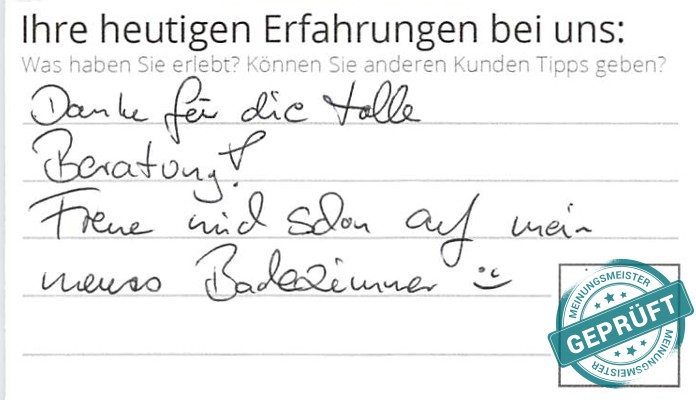 Ihre heutigen Erfahrungen bei uns:
Was haben Sie erlebt? Können Sie anderen Kunden Tipps geben?
Danke für die tolle
Beratung!
Freue mich schon auf mein
neues Badezimmer
MEINUNGSMEISTER
GEPRÜFT
MEINUNGSMEISTER